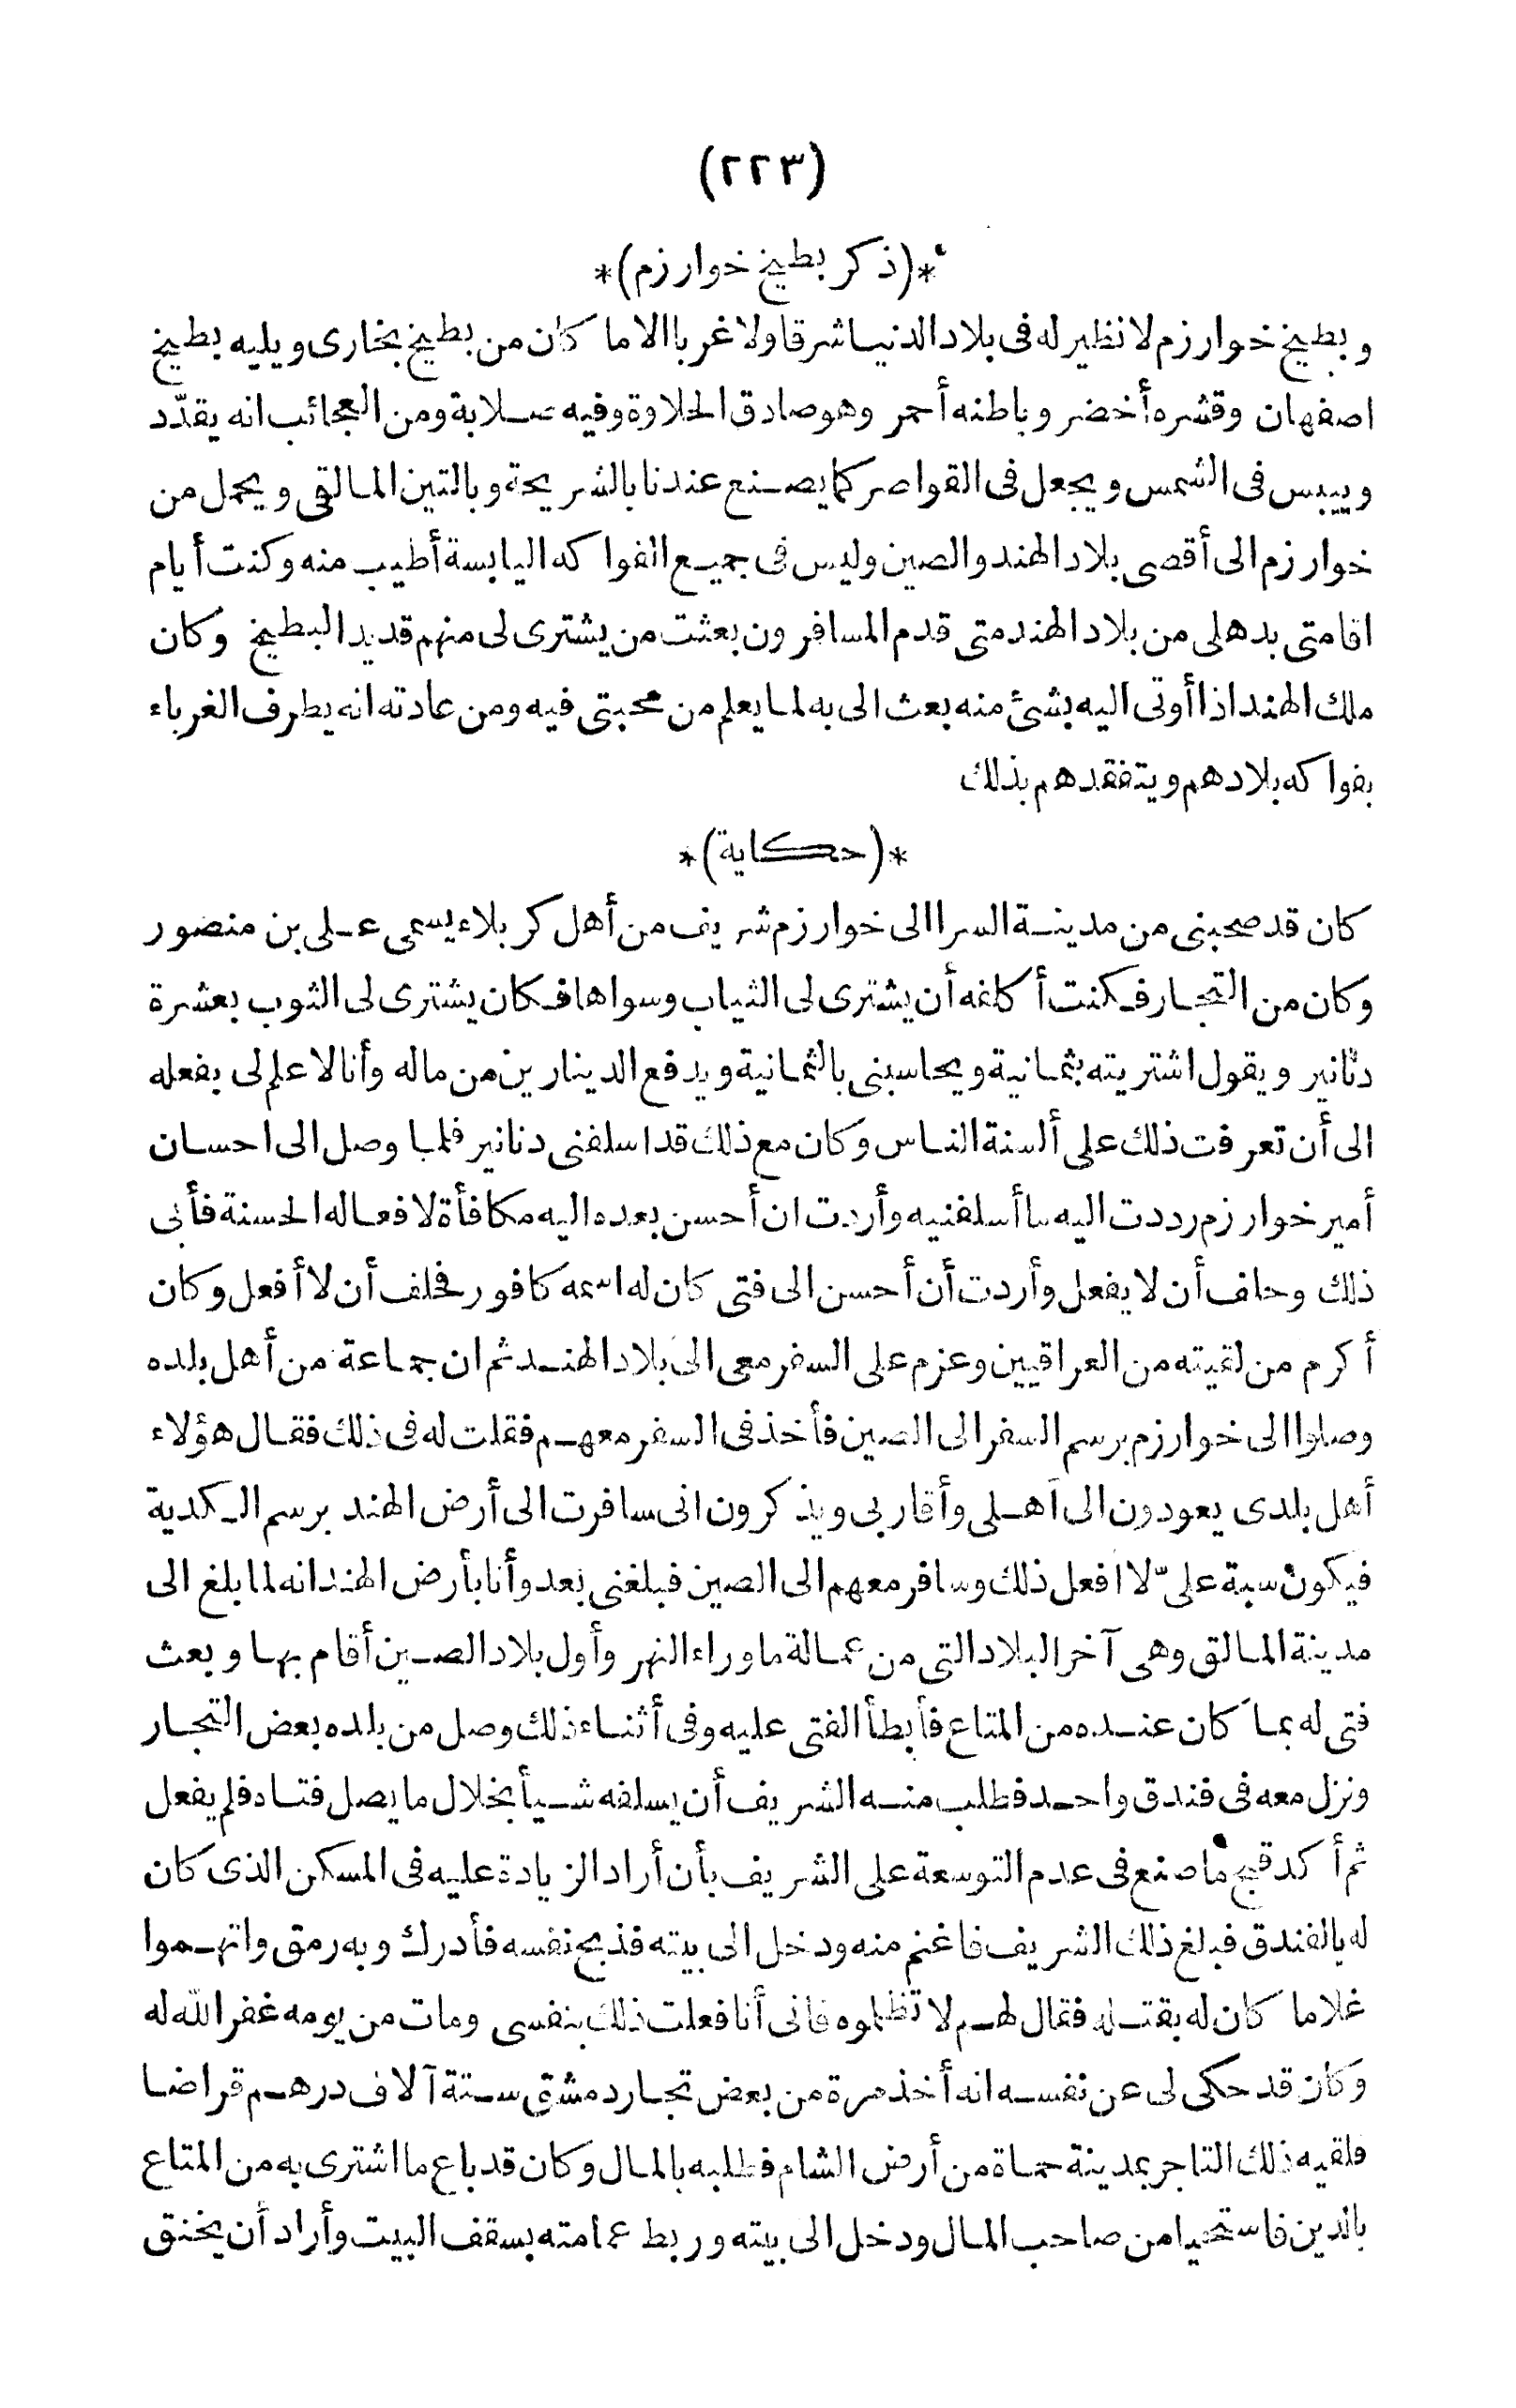 (٢٢٣)
*(ذكر بطيخ خوارزم)*
وبطيخ خوارزم لا نظير له فى بلاد الدنيا شرقا ولا غربا الا ما كان من بطيخ بخارى ويليه بطيخ
اصفهان وقشره أخضر وباطنه أحمر وهو صادق الحلاوة وفيه صلابة ومن العجائب انه يقدّد
وييبس فى الشمس ويجعل فى القواصر كما يصنع عندنا بالشريحة وبالتين المالقى ويحمل من
خوارزم الى أقصى بلاد الهند والصين وليس فى جميع الفواكه اليابسة أطيب منه وكنت أيام
اقامتى بدهلى من بلاد الهند متى قدم المسافرون بعثت من يشترى لى منهم قديد البطيخ وكان
ملك الهند اذا أوتى اليه بشئ منه بعث الى به لما يعلم من محبتى فيه ومن عادته انه يطرف الغرباء
بفواكه بلادهم ويتفقدهم بذلك
*(حكاية)*
كان قد صحبنى من مدينة السرا الى خوارزم شريف من أهل كربلاء يسمى على بن منصور
وكان من التجار فكنت أكلفه أن يشترى لى الثياب وسواها فكان يشترى لى الثوب بعشرة
دنانير ويقول اشتريته بثمانية ويحاسبنى بالثمانية ويدفع الدينارين من ماله وأنا لا علم لى بفعله
الى أن تعرفت ذلك على ألسنة الناس وكان مع ذلك قد اسلفنى دنانير فلما وصل الى احسان
أمير خوارزم رددت اليه ما أسلفنيه وأردت ان أحسن بعده اليه مكافأة لافعاله الحسنة فأبى
ذلك وحلف أن لا يفعل وأردت أن أحسن الى فتى كان له اسمه كافور فحلف أن لا أفعل وكان
أكرم من لقيته من العراقيين وعزم على السفر معى الى بلاد الهند ثم ان جماعة من أهل بلده
وصلوا الى خوارزم برسم السفر الى الصين فأخذ فى السفر معهم فقلت له فى ذلك فقال هؤلاء
أهل بلدى يعودون الى أهلى وأقاربى ويذكرون انى سافرت الى أرض الهند برسم الكدية
فيكون سبة علىّ لا افعل ذلك وسافر معهم الى الصين فبلغنى بعد وأنا بأرض الهند انه لما بلغ الى
مدينة المالق وهى آخر البلاد التى من عمالة ما وراء النهر وأول بلاد الصين أقام بها وبعث
فتى له بما كان عنده من المتاع فأبطأ الفتى عليه وفى أثناء ذلك وصل من بلده بعض التجار
ونزل معه فى فندق واحد فطلب منه الشريف أن يسلفه شيأ بخلال ما يصل فتاه فلم يفعل
ثم أكد قبح ما صنع فى عدم التوسعة على الشريف بأن أراد الزيادة عليه فى المسكن الذى كان
له بالفندق فبلغ ذلك الشريف فاغتم منه ودخل الى بيته فذبح نفسه فأدرك وبه رمق واتهموا
غلاما كان له بقتله فقال لهم لا تظلموه فانى أنا فعلت ذلك بنفسى ومات من يومه غفر الله له
وكان قد حكى لى عن نفسه انه أخذ مرة من بعض تجار دمشق ستة آلاف درهم قراضا
فلقيه ذلك التاجر بمدينة حماة من أرض الشام فطلبه بالمال وكان قد باع ما اشترى به من المتاع
بالدين فاستحيا من صاحب المال ودخل الى بيته وربط عمامته بسقف البيت وأراد أن يخنق